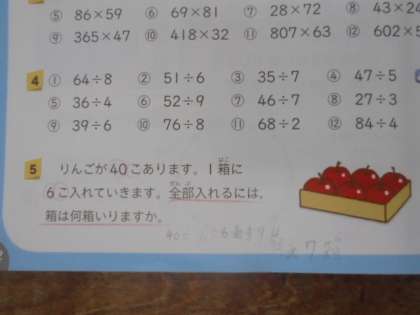 ⑤ 86×59 ⑥ 69×81 ⑦ 28×72 ⑧ 43×24
⑨ 365×47 ⑩ 418×32 ⑪ 807×63 ⑫ 602×5
4 ① 64÷8 ② 51÷6 ③ 35÷7 ④ 47÷5
⑤ 36÷4 ⑥ 52÷9 ⑦ 46÷7 ⑧ 27÷3
⑨ 39÷6 ⑩ 76÷8 ⑪ 68÷2 ⑫ 84÷4
5 りんごが40こあります。1箱に
6こ入れていきます。全部入れるには、
箱は何箱いりますか。
7箱